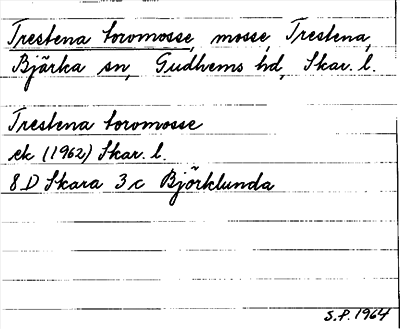 Trestena toromosse, mosse, Trestena,
Bjärka sn, Gudhems hd, Skar. l.
Trestena toromosse
ek (1962) Skar. l.
8D Skara 3c Björklunda
S.P. 1964